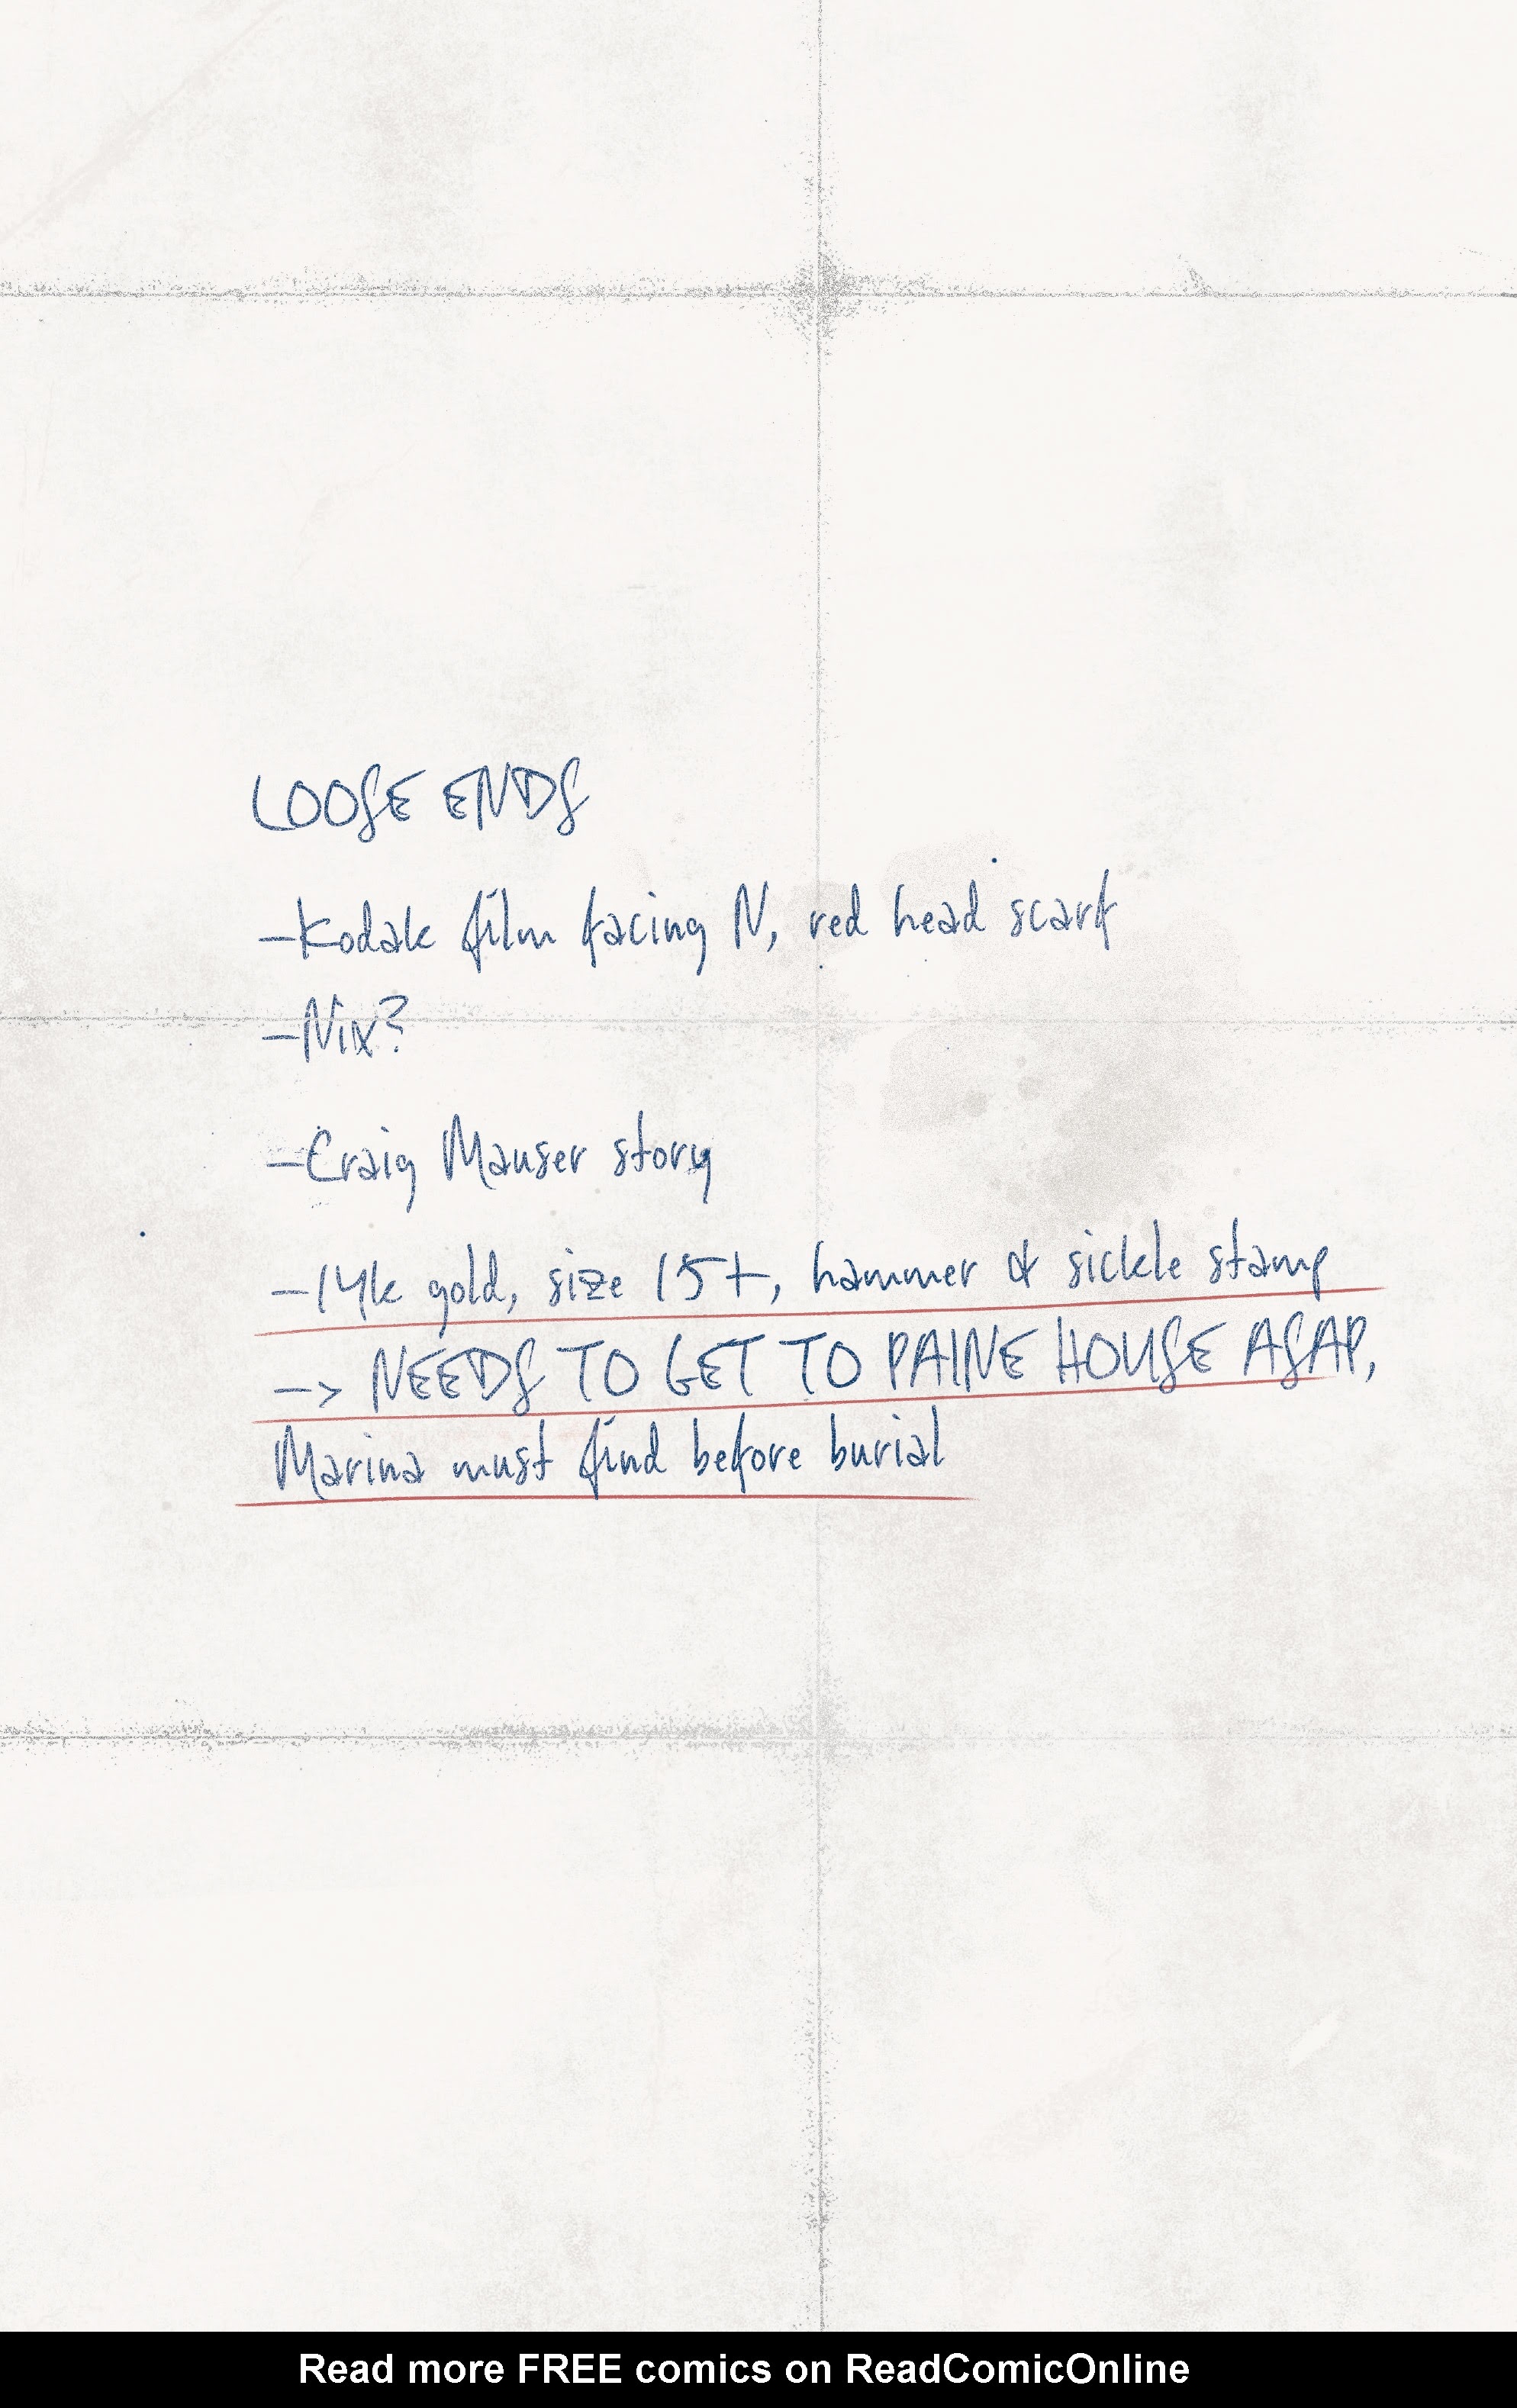 LOOSE ENDS
-Kodak film facing N, red head scarf
-Nix?
-Craig Mauser story
-14k gold, size 15+, hammer & sickle stamp
-> NEEDS TO GET TO PAINE HOUSE ASAP,
Marina must find before burial
Read more FREE comics on ReadComicOnline